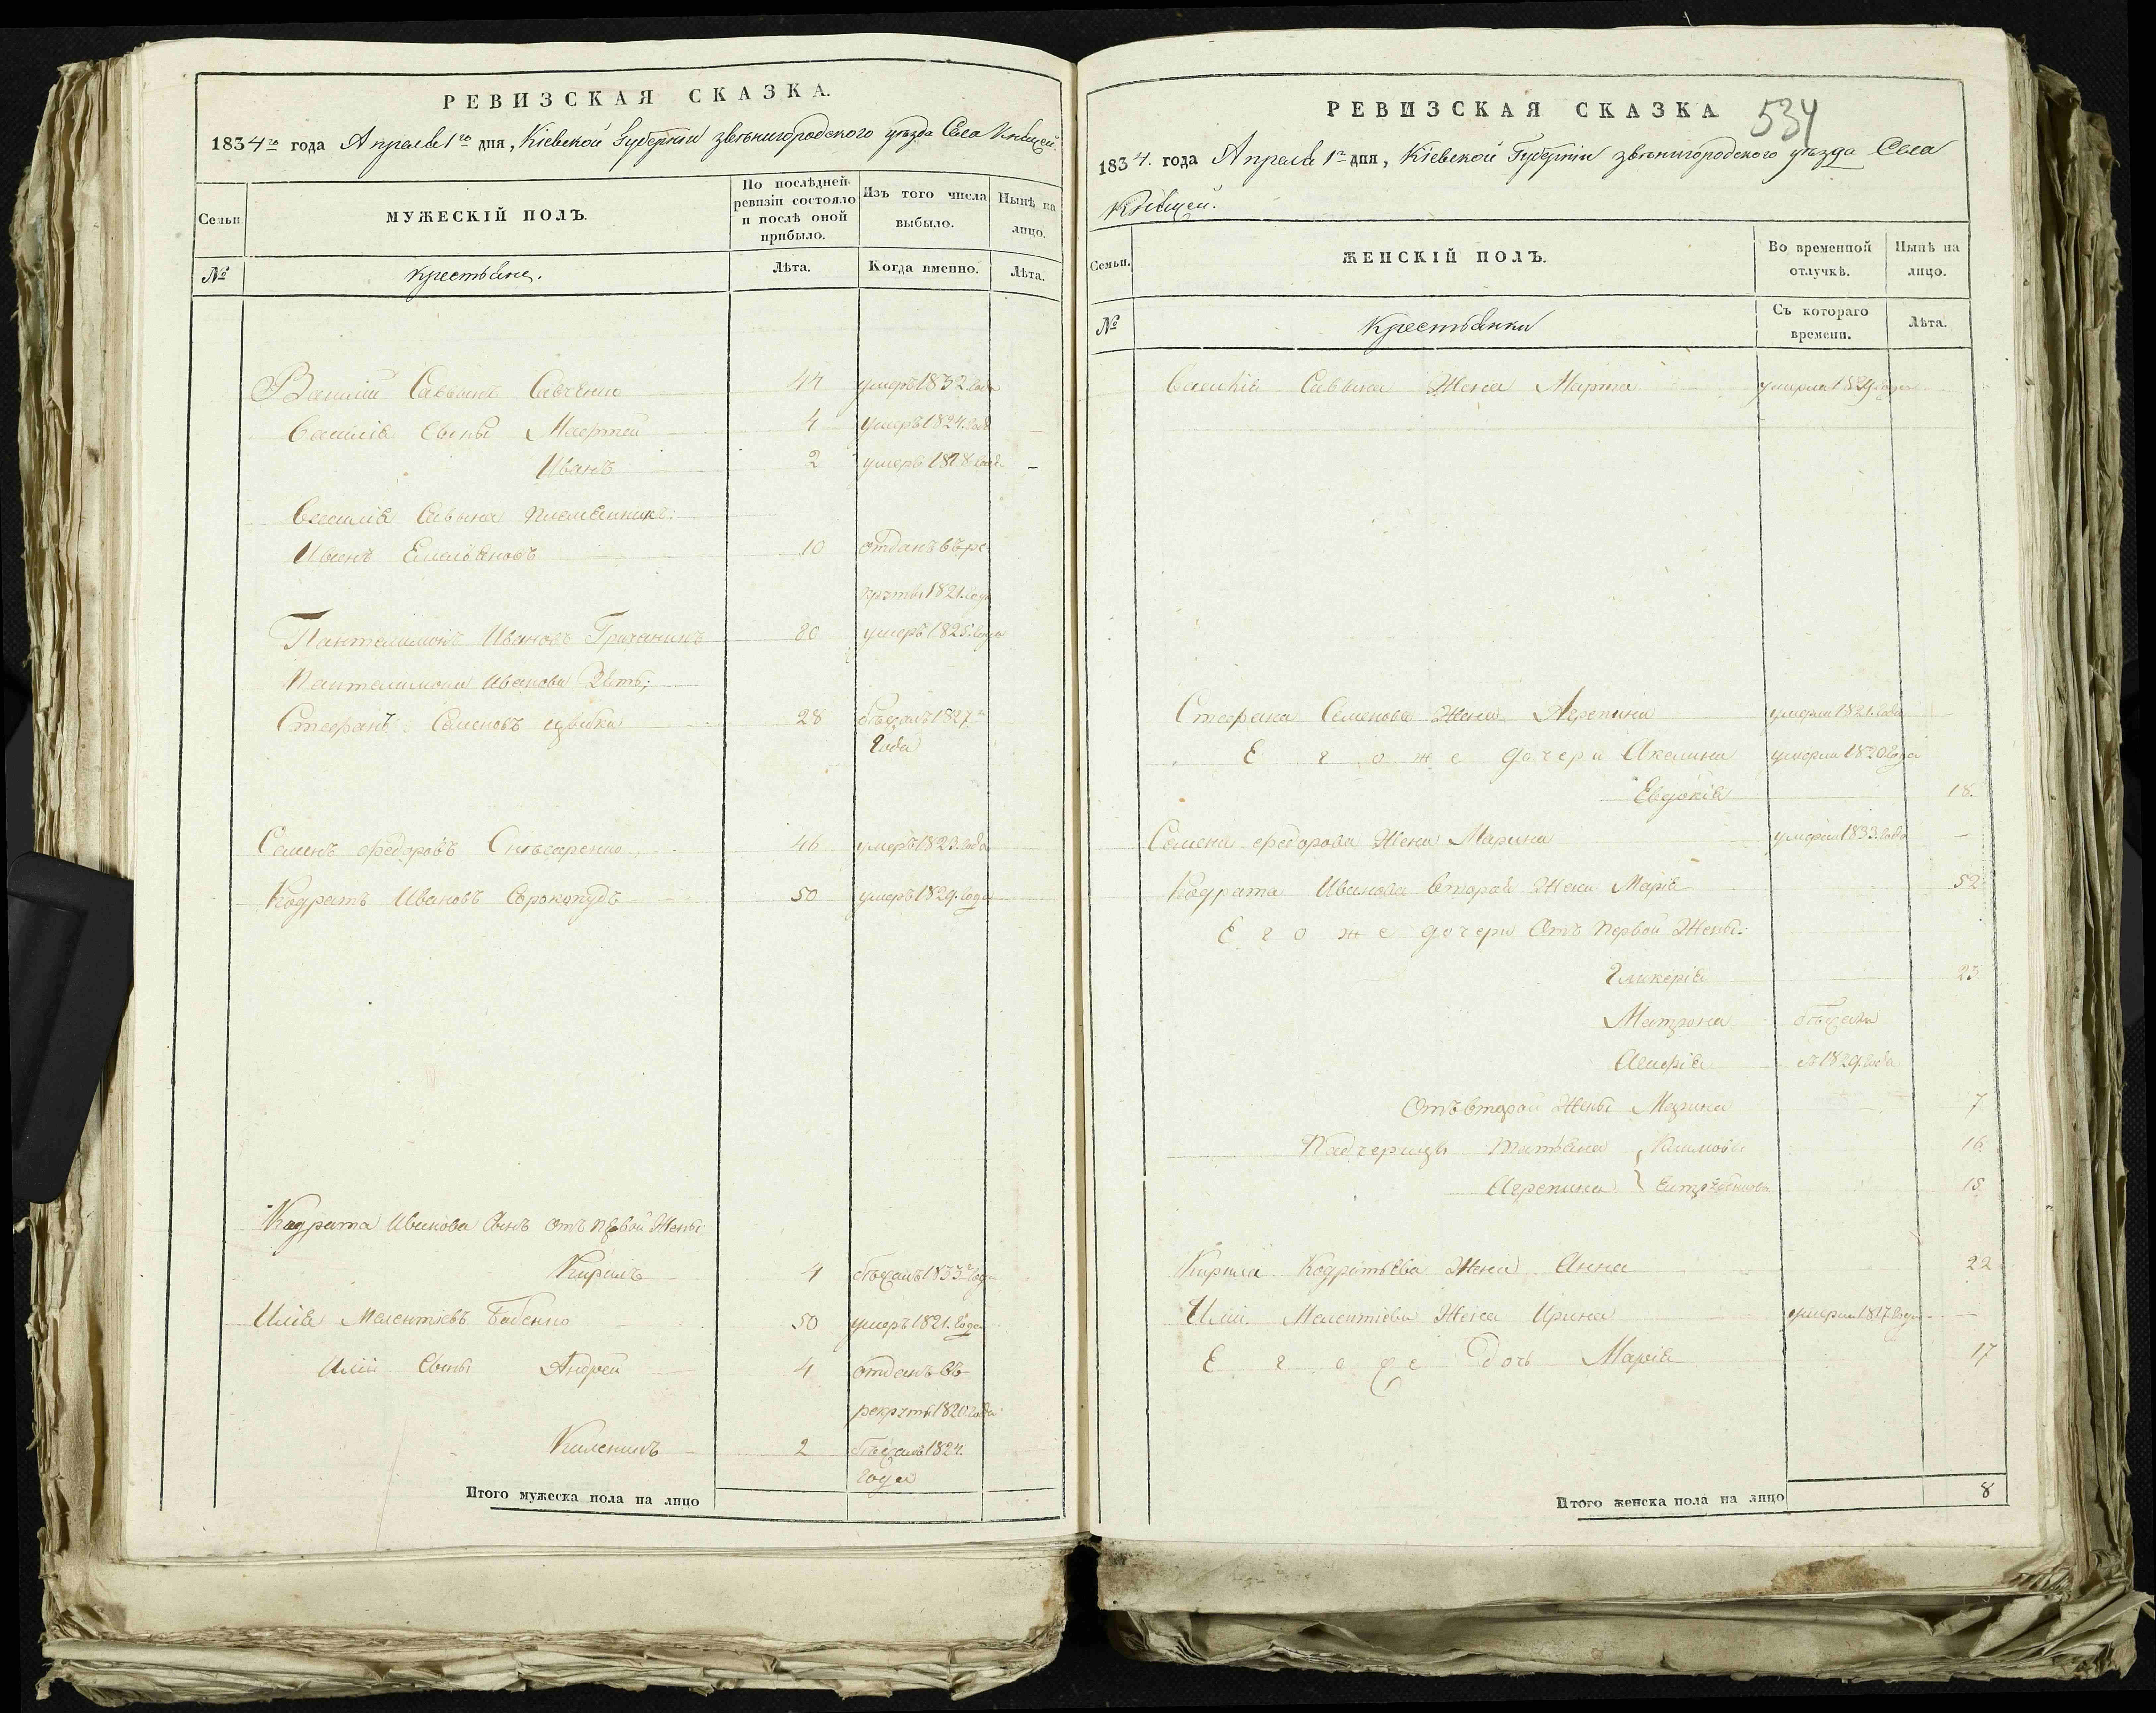 РЕВИЗСКАЯ СКАЗКА.
1834го года Апреля 1го дня, Кіевской Губерніи звѣнигородского уѣзда Села
Семьи.
МУЖЕСКІЙ ПОЛЪ.
По послѣдней ревизіи состояло и послѣ оной прибыло.
Изъ того числа выбыло.
Нынѣ на лицо.
№
Крестьяне.
Лѣта.
Когда именно.
Лѣта.
Василій Саввынъ Савченко 44 умеръ 1832 года
Василія Сыны Матфей 4 умеръ 1824. года
Иванъ 2 умеръ 1818 года
Василія Саввына племянникъ:
Иванъ Емельяновъ 10 отданъ въ ре-
круты 1821. года
Пантелимонъ Ивановъ 80 умеръ 1825. года
Пантелимона Иванова Зять;
Стефанъ Семеновъ Цвѣбка 28 бѣжалъ 1827го
года
Семенъ Федоровъ Слѣсаренко 46 умеръ 1823. года
Кодратъ Ивановъ Сорокопудъ 50 умеръ 1829. года
Кодрата Иванова Сынъ отъ первой Жены:
Кирилъ 4 бѣжалъ 1833го года
Илія Мелентіевъ Бабенко 50 умеръ 1821. года
Иліи Сыны Андрей 4 отданъ въ
рекруты 1820 года
Каленикъ 2 бѣжалъ 1824.
года
Итого мужеска пола на лицо
РЕВИЗСКАЯ СКАЗКА
534
1834. года Апреля 1го дня, Кіевской Губерніи звѣнигородского уѣзда Села
Семьи.
ЖЕНСКІЙ ПОЛЪ.
Во временной отлучкѣ.
Нынѣ на лицо.
№
Крестьянки
Съ котораго времени.
Лѣта.
Василія Саввына Жена Марта умерла 1829 года
Стефана Семенова Жена Агрепина умерла 1821. года
Е г о ж е дочери Акелина умерла 1820 года
Евдокія 18.
Семена Федорова Жена Марина умерла 1833. года
Кодрата Иванова вторая Жена Марія 52
Е г о ж е дочери Отъ первой Жены:
Гликерія 23
Матрона бѣжали
съ 1829. года
Отъ второй Жены Марина 7
Падчерицы Татьяна 16
Агрепина 15
Кирила Кодратьева Жена Анна 22
Иліи Мелентіева Жена Ирина умерла 1817. года
Е г о ж е дочь Марія 17
Итого женска пола на лицо 8